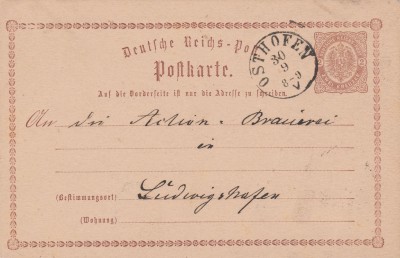 Deutsche Reichs-Post
Postkarte.
OSTHOFEN
30
9
8-9
V
Auf die Vorderseite ist nur die Adresse zu schreiben.
An die Action-Brauerei
in
(Bestimmungsort) Ludwigshafen
(Wohnung)